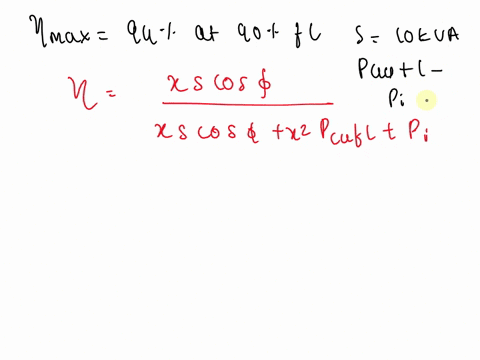 ηmax = 94% at 90% fl S = 10kVA
Pcufl -
Pi
η = x s cos ϕ
x s cos ϕ + x2 Pcufl + Pi